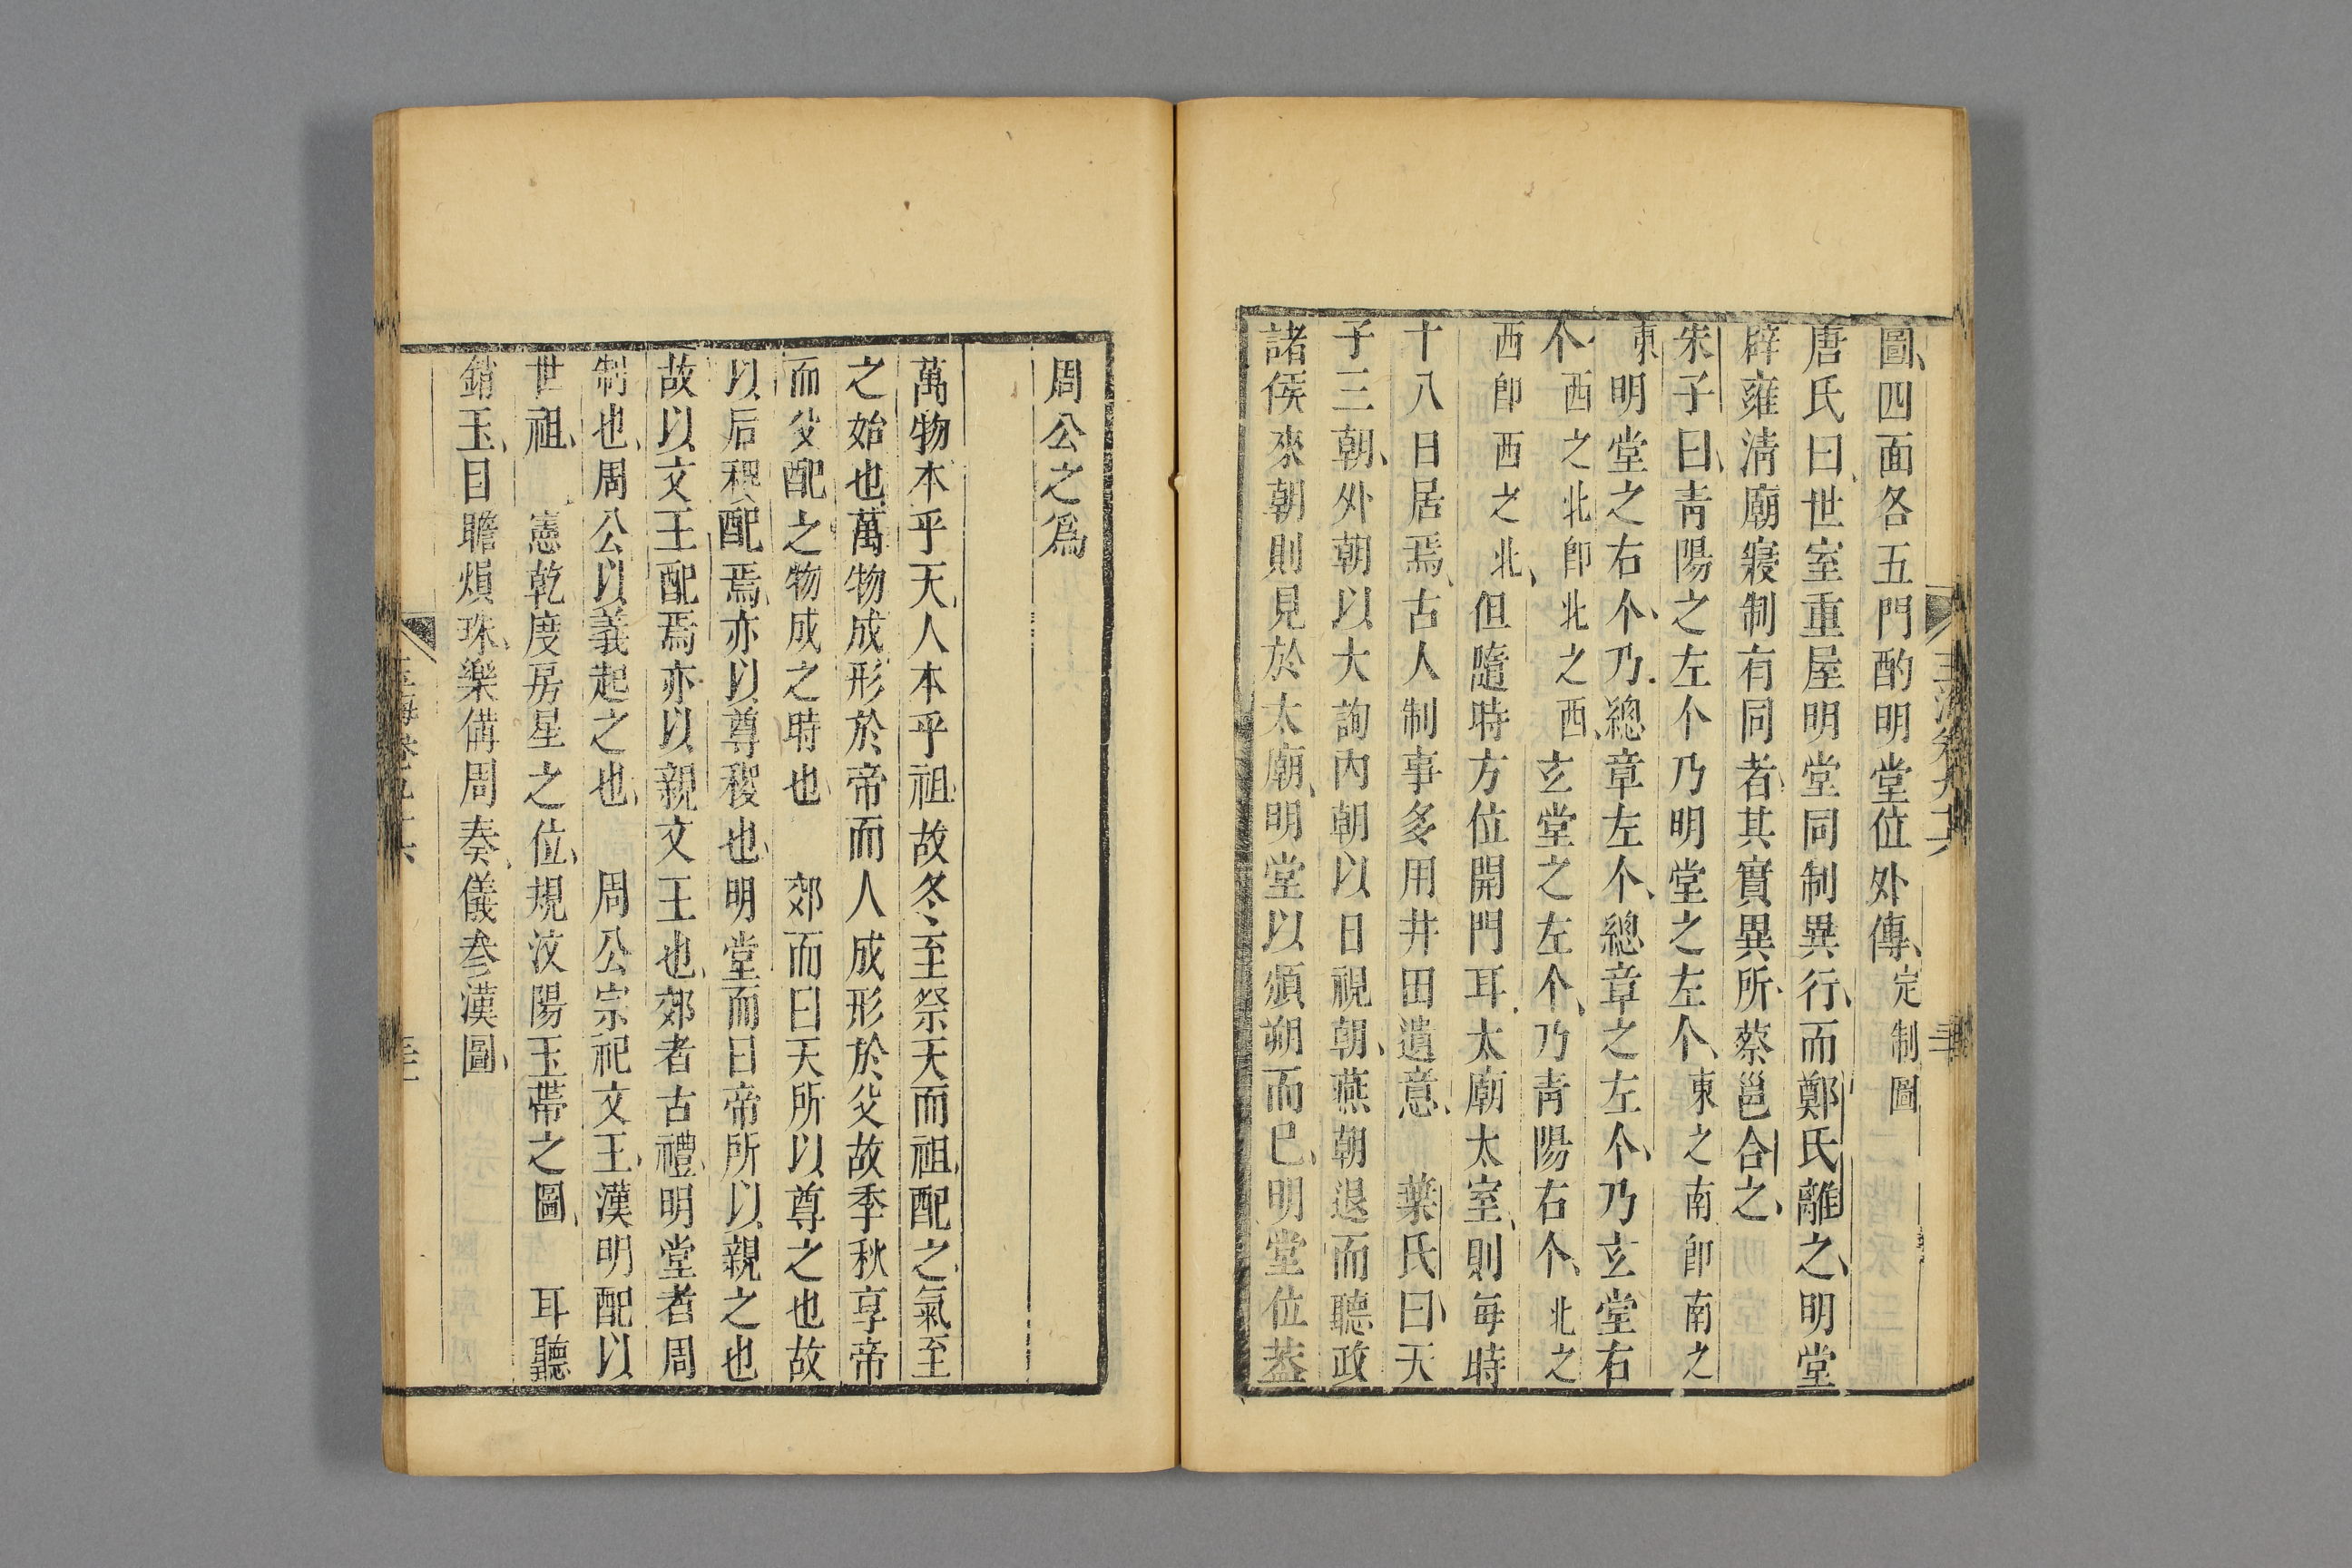 圖四面各五門酌明堂位外傳定制圖
唐氏曰世室重屋明堂同制異行而鄭氏離之明堂
辟雍淸廟寢制有同者其實異所蔡邕合之
朱子曰靑陽之左个乃明堂之左个東之南卽南之
東明堂之右个乃總章左个總章之左个乃玄堂右
个西之北卽北之西玄堂之左个乃靑陽右个北之
西卽西之北但隨時方位開門耳太廟太室則每時
十八日居焉古人制事多用井田遺意 葉氏曰天
子三朝外朝以大詢內朝以日視朝燕朝退而聽政
諸侯來朝則見於太廟明堂以頒朔而已明堂位葢
周公之爲
萬物本乎天人本乎祖故冬至祭天而祖配之氣至
之始也萬物成形於帝而人成形於父故季秋享帝
而父配之物成之時也 郊而曰天所以尊之也故
以后稷配焉亦以尊稷也明堂而曰帝所以親之也
故以文王配焉亦以親文王也郊者古禮明堂者周
制也周公以義起之也 周公宗祀文王漢明配以
世祖 憲乾度房星之位規汶陽玉帶之圖 耳聽
鏘玉目瞻熉珠樂備周奏儀參漢圖